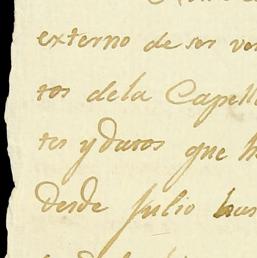 externo de ser ver
tos dela Capell
tes y duros que h
desde Julio has